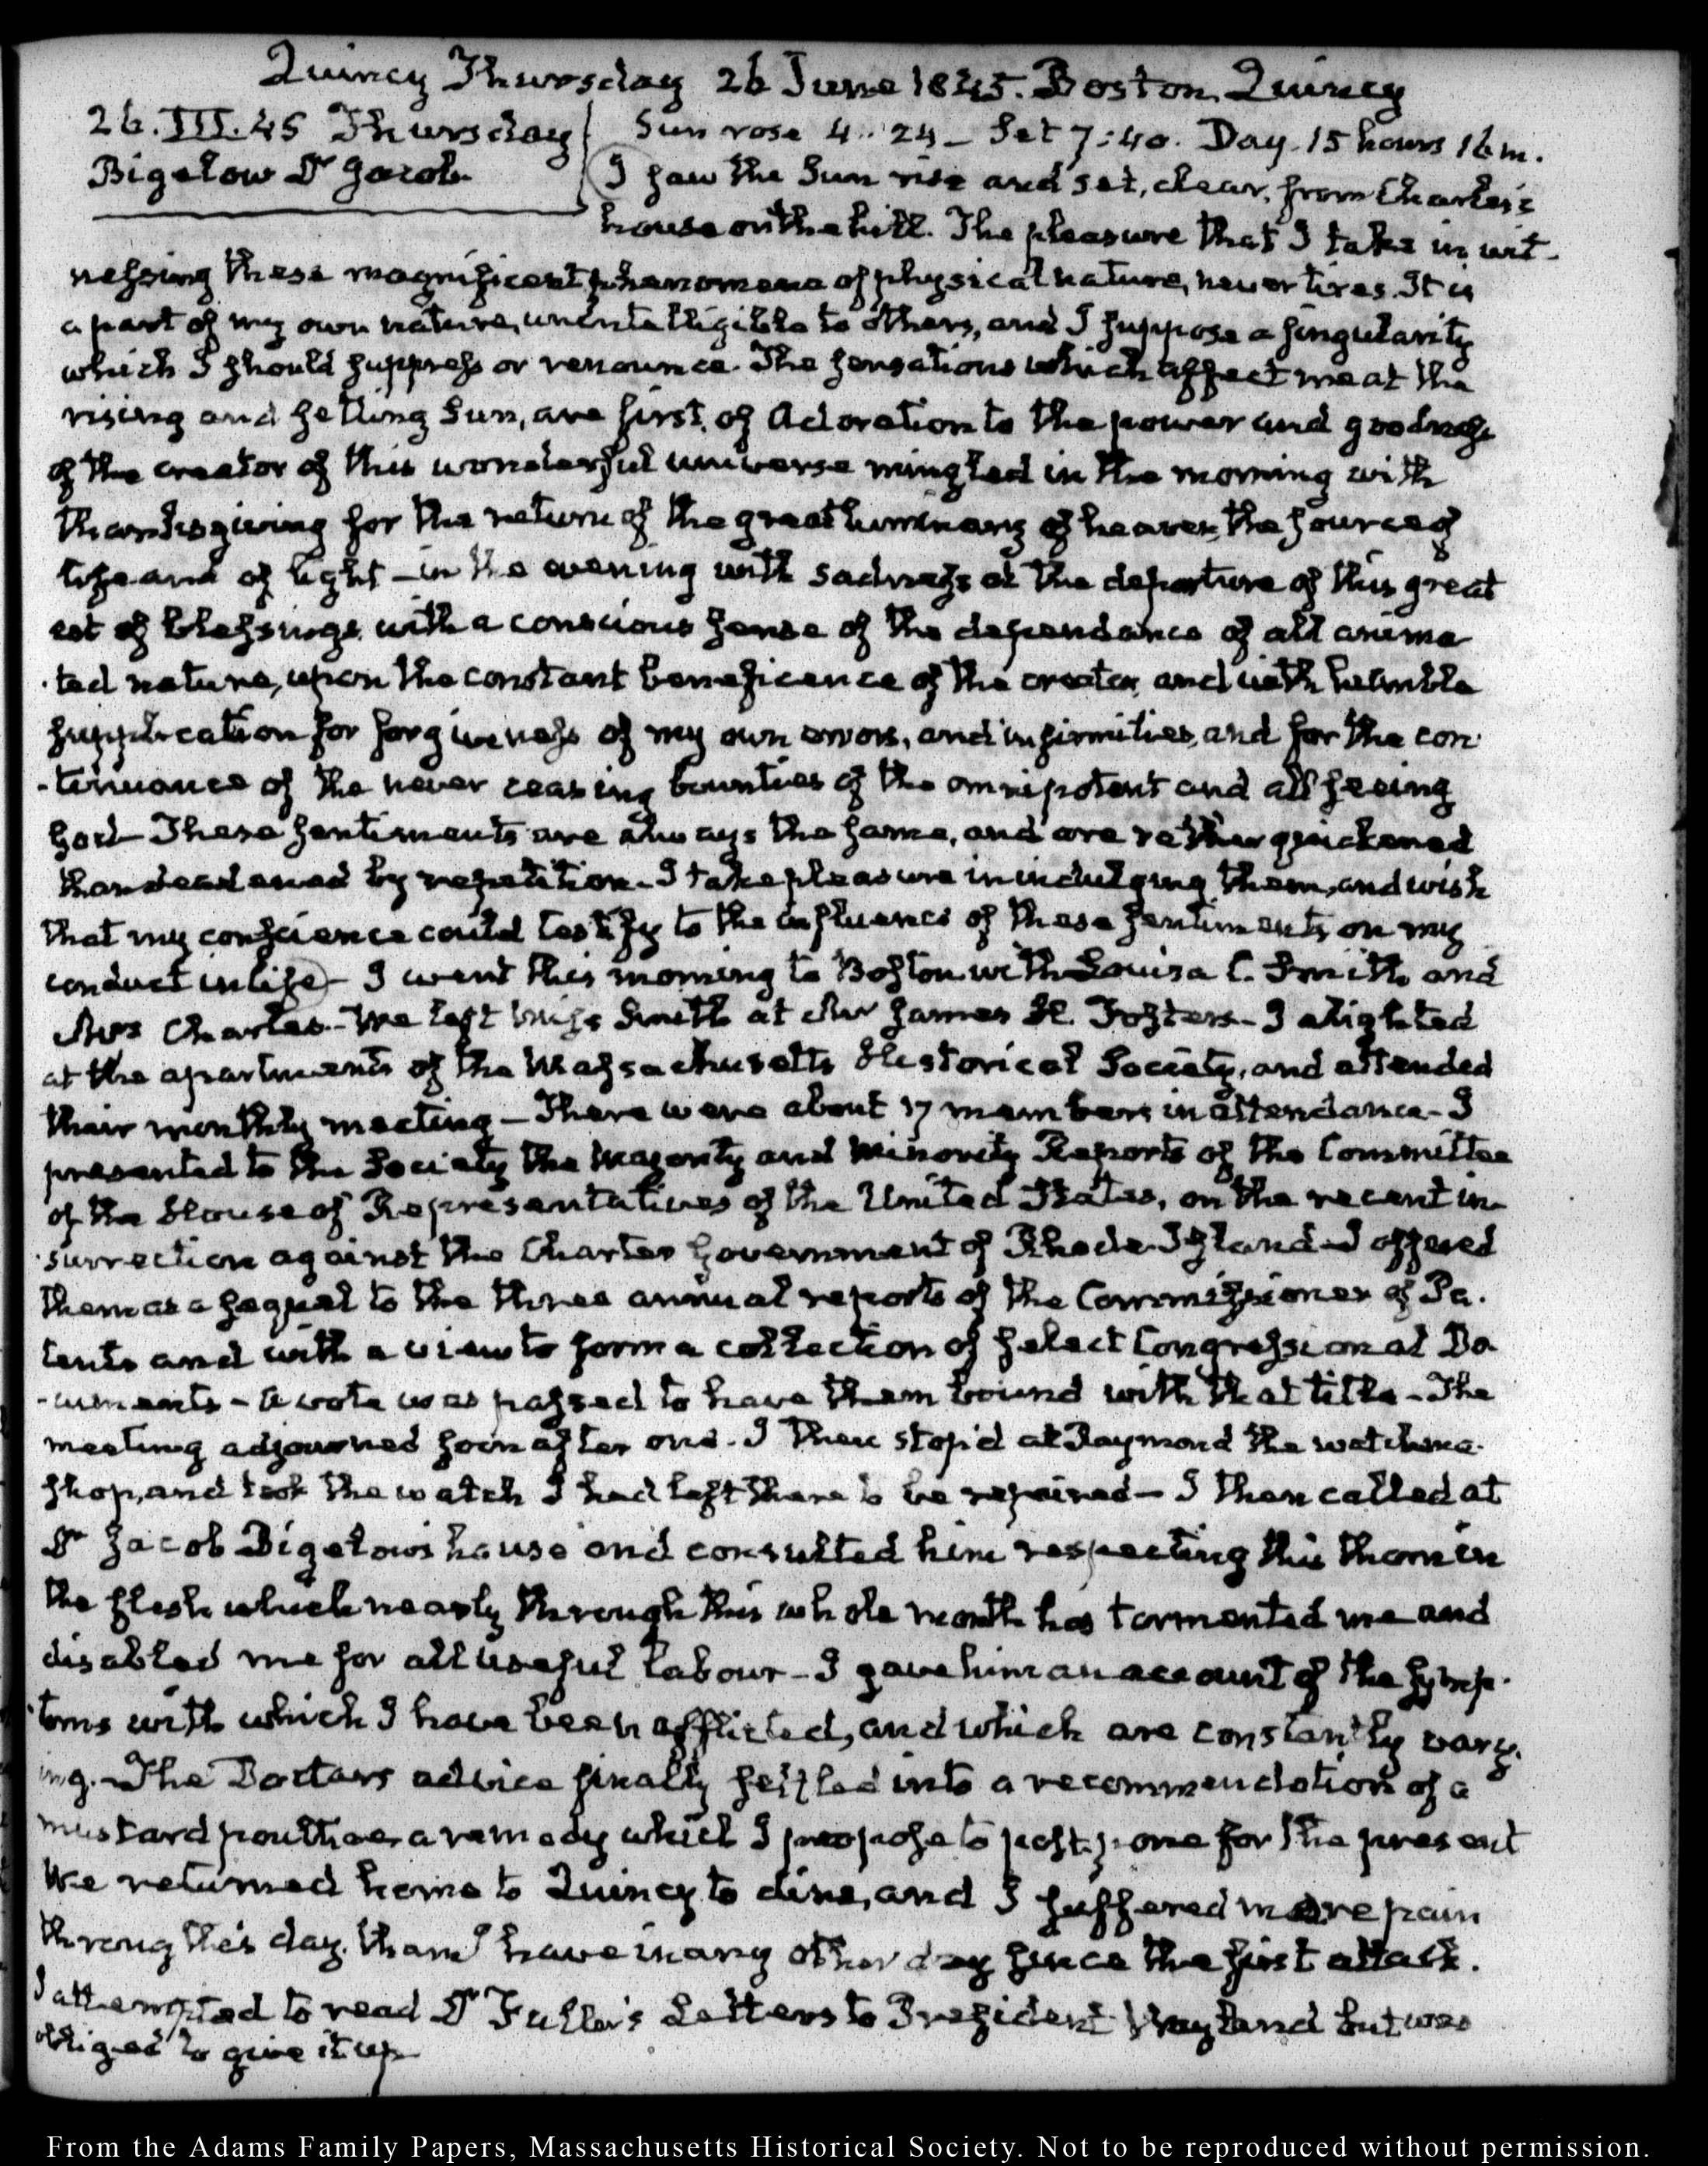 Quincy Thursday 26 June 1845. Boston. Quincy
26. III. 45 Thursday
Bigelow Dr Jacob.
Sun rose 4..24 – Set 7:40. Day. 15 hours 16 m.
I saw the Sun rise and set, clear, from Charles's
house on the hill. The pleasure that I take in wit-
nessing these magnificent phenomena of physical nature, never tires. It is
a part of my own nature, unintelligible to others, and I suppose a singularity
which I should suppress or renounce. The sensations which affect me at the
rising and setting Sun, are first, of Adoration to the power and goodness
of the creator of this wonderful universe mingled in the morning with
thanksgiving for the return of the great luminary of heaven, the source of
life and of light – in the evening with sadness at the departure of this great
 of blessings, with a conscious sense of the dependance of all anima
-ted nature, upon the constant beneficence of the creator, and with humble
supplication for forgiveness of my own errors, and infirmities, and for the con
-tinuance of the never ceasing bounties of the omnipotent and all seeing
God – These sentiments are always the same, and are rather quickened
than deadened by repetition – I take pleasure in indulging them, and wish
that my conscience could testify to the influence of these sentiments on my
conduct in life – I went this morning to Boston with Louisa C. Smith and
Mrs Charles. – We left Miss Smith at Mr James H. Foster's – I alighted
at the apartments of the Massachusetts Historical Society, and attended
their monthly meeting – There were about 17 members in attendance – I
presented to the Society the Majority and Minority Reports of the Committee
of the House of Representatives of the United States, on the recent in-
-surrection against the Charter Government of Rhode-Island – I offered
them as a sequel to the three annual reports of the Commissioner of Pa-
tents and with a view to form a collection of select Congressional Do
-cuments – A vote was passed to have them bound with that title – The
meeting adjourned soon after one. I then stop'd at Raymond the watchma.
shop, and took the watch I had left there to be repaired – I then called at
Dr Jacob Bigelow's house and consulted him respecting this thorn in
the flesh which nearly through this whole month has tormented me and
disabled me for all useful labour – I gave him an account of the symp-
-toms with which I have been afflicted, and which are constantly vary-
ing. – The Doctors advice finally settled into a recommendation of a
mustard poultice, a remedy which I propose to postpone for the present
We returned home to Quincy to dine, and I suffered more pain
throug this day, than I have in any other day since the first attack.
I attempted to read Dr Fuller's Letters to President Wayland but was
obliged to give it up
From the Adams Family Papers, Massachusetts Historical Society. Not to be reproduced without permission.